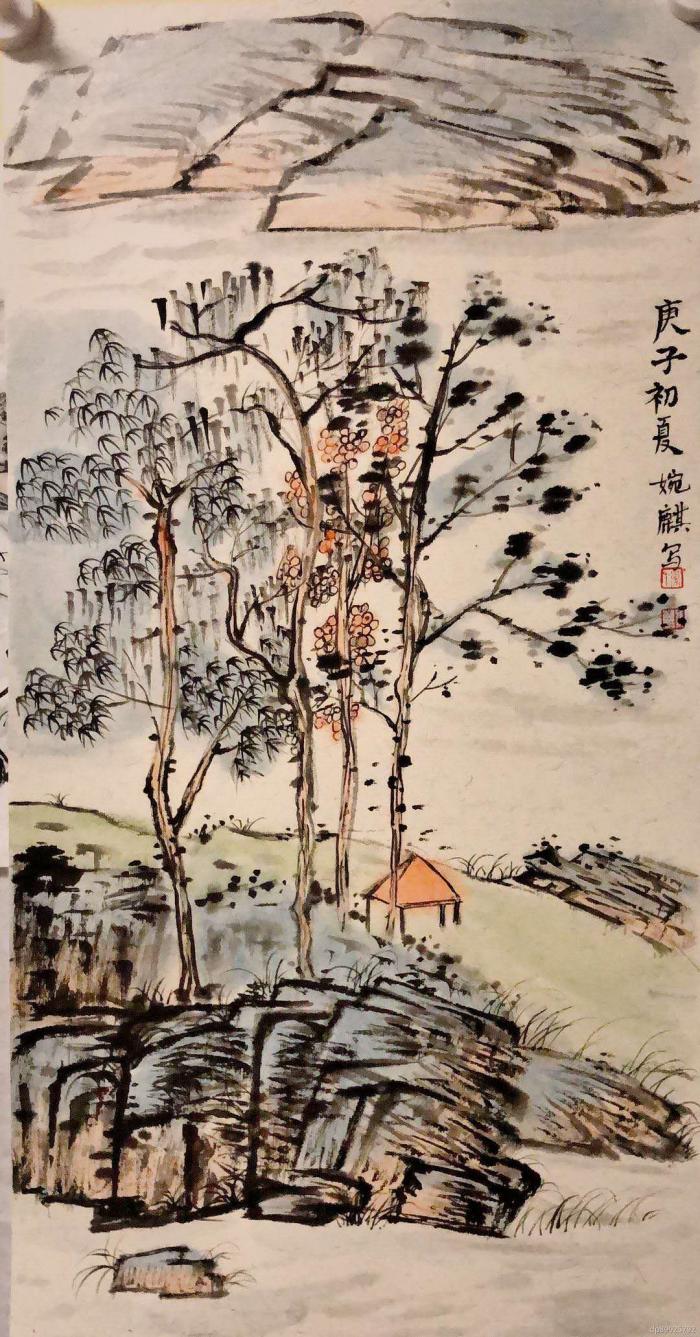 庚子初夏 婉麒写